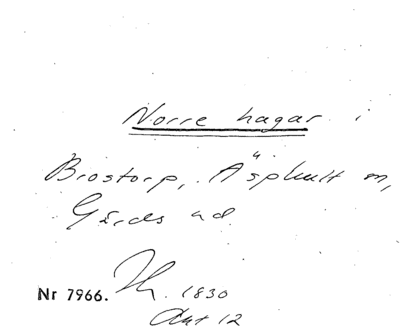 Norre hagar i
Brostorp, Äsphult sn,
Gärds hd.
Nr 7966. 1830
Akt 12